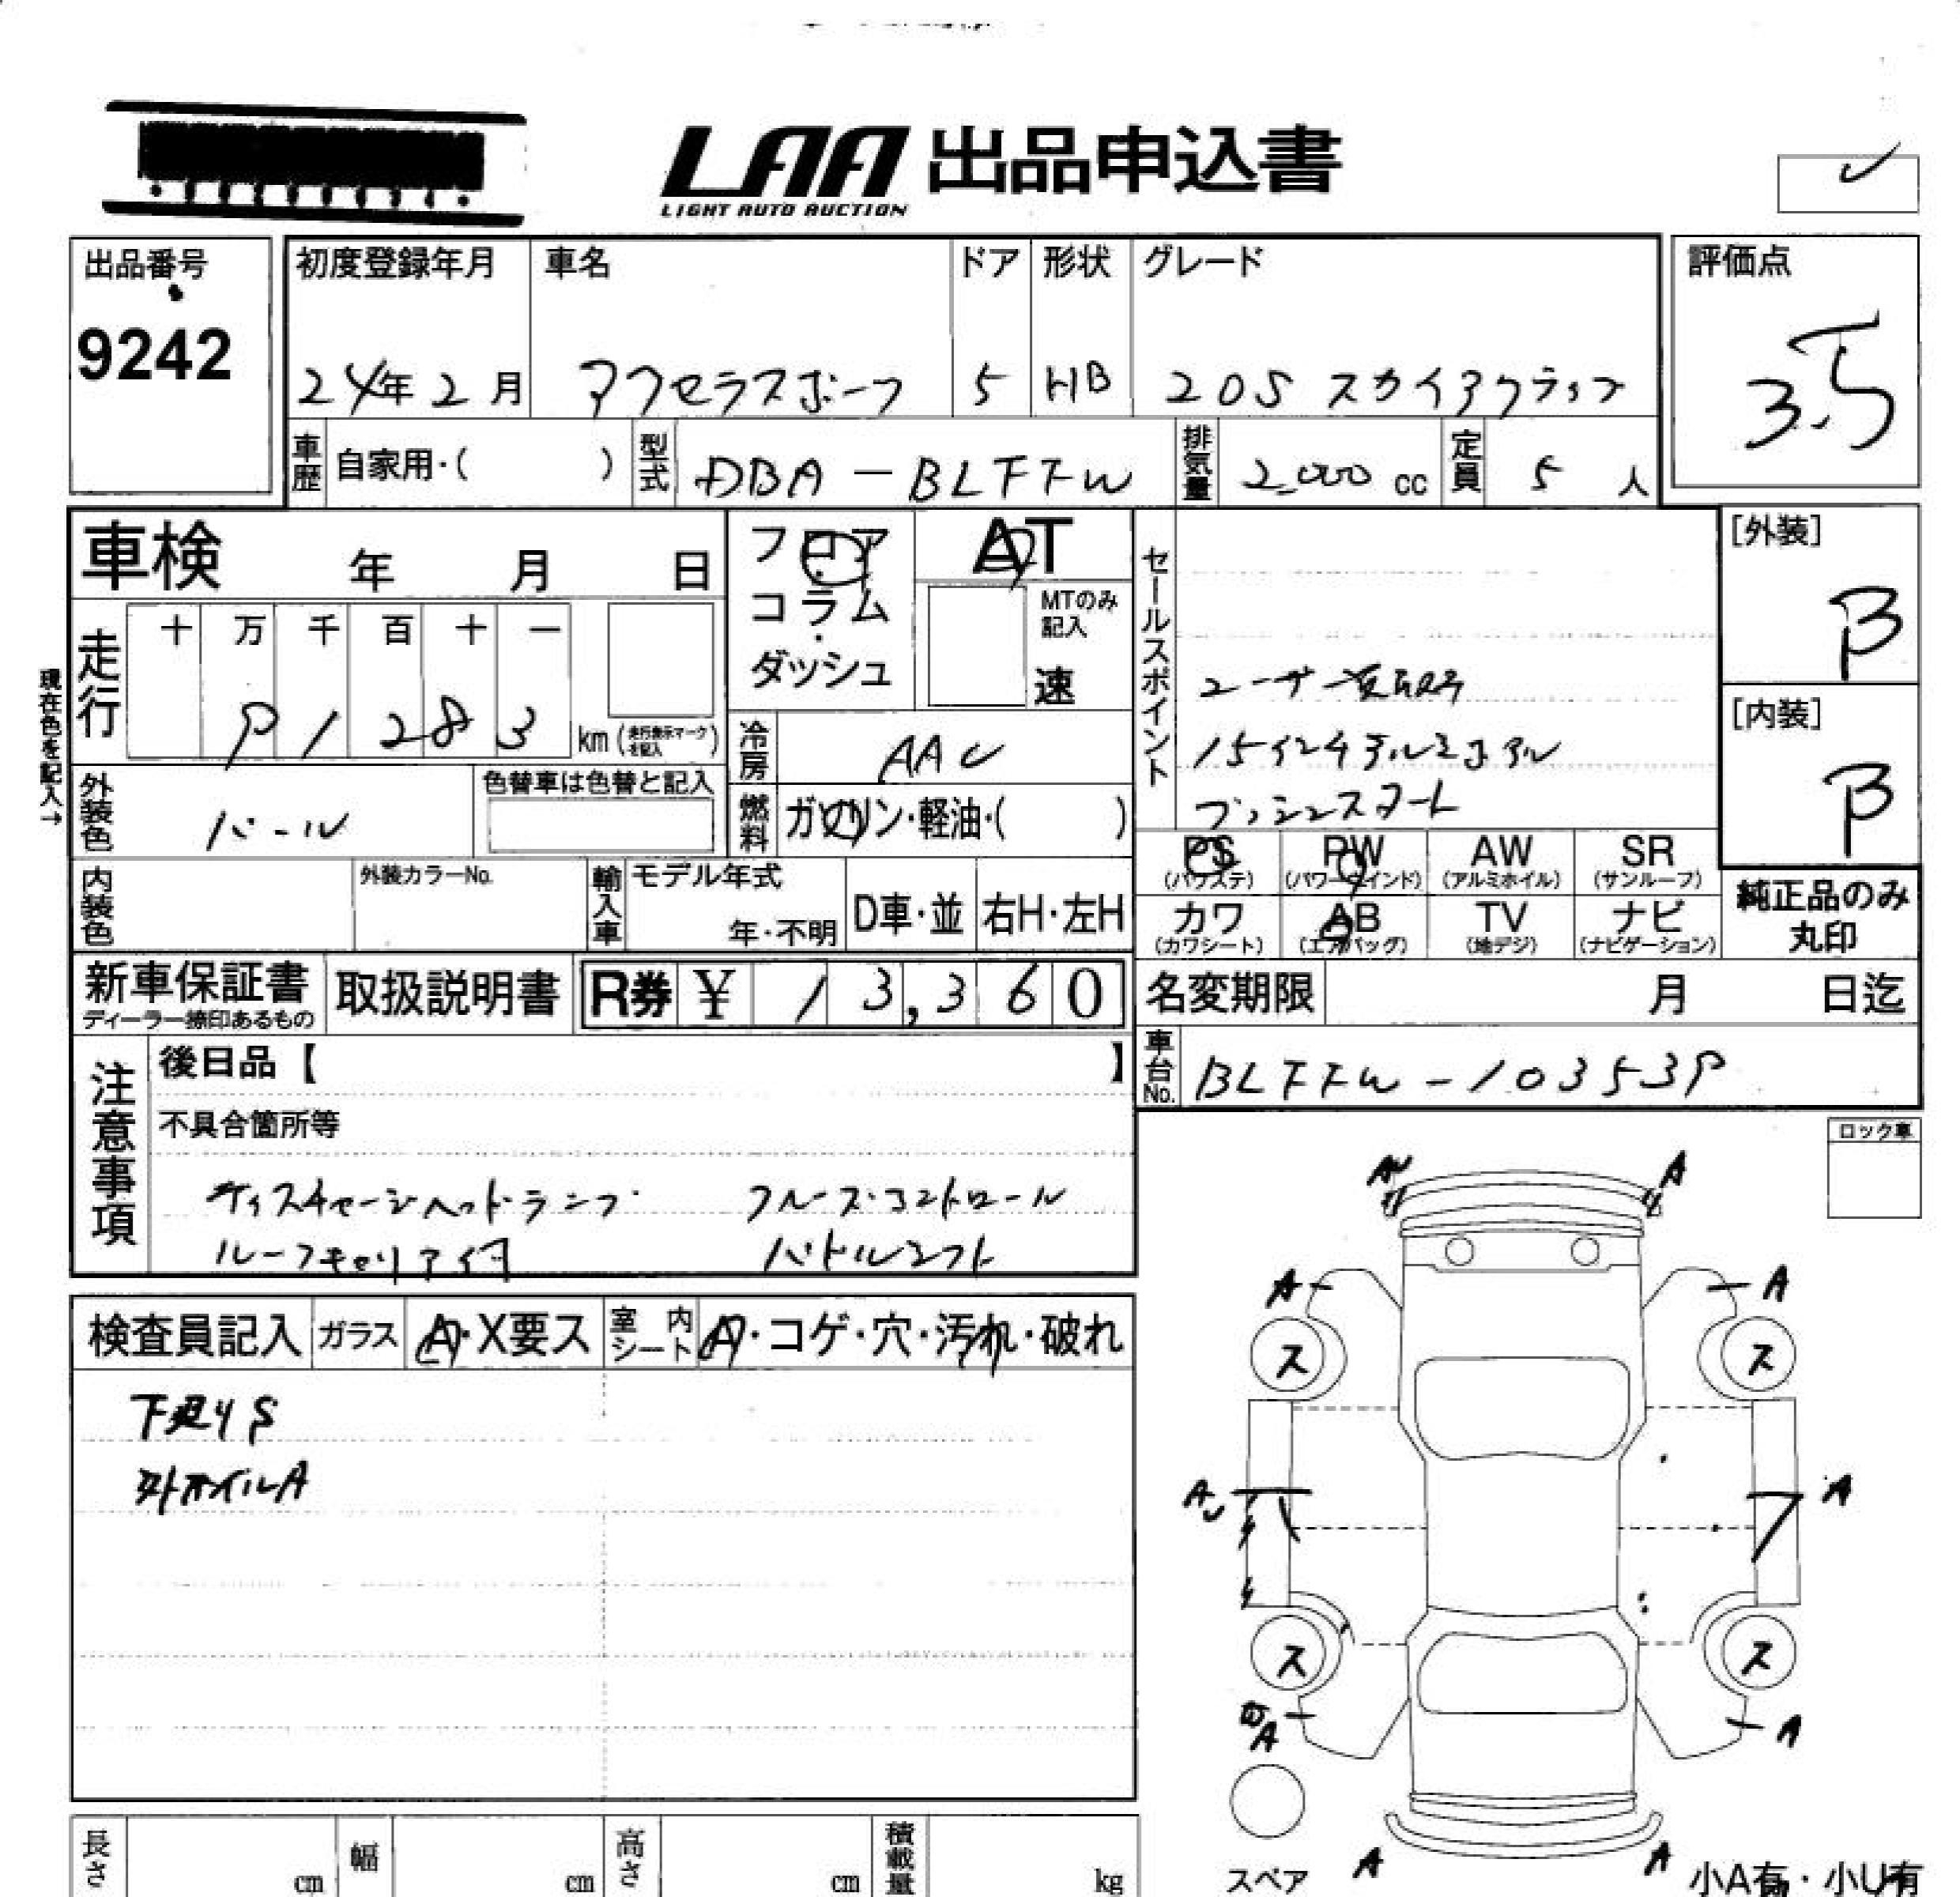 LAA 出品申込書
LIGHT AUTO AUCTION
出品番号
9242
初度登録年月
24年2月
車名
アクセラスポーツ
ドア
5
形状
HB
グレード
20S スカイアクティブ
評価点
3.5
車歴 自家用・( )
型式 DBA-BLFFW
排気量 2,000 cc
定員 5 人
車検 年 月 日
現在色を記入→
走行 十 万 千 百 十 一
91283 km (走行表示マークを記入)
外装色 パール
色替車は色替と記入
フロア・コラム・ダッシュ
AT
MTのみ記入
速
冷房 AAC
燃料 ガソリン・軽油・( )
セールスポイント
ユーザー買取車
15インチアルミホイル
プッシュスタート
[外装]
B
[内装]
B
内装色
外装カラーNo.
輸入車 モデル年式
年・不明
D車・並
右H・左H
PS (パワステ)
PW (パワーウインド)
AW (アルミホイル)
SR (サンルーフ)
カワ (カワシート)
AB (エアバッグ)
TV (地デジ)
ナビ (ナビゲーション)
純正品のみ
丸印
新車保証書
ディーラー捺印あるもの
取扱説明書
R券 ¥ 13,360
名変期限 月 日迄
車台No. BLFFW-103539
注意事項
後日品【 】
不具合箇所等
ディスチャージヘッドランプ クルーズコントロール
ルーフキャリア付 パドルシフト
ロック車
検査員記入 ガラス A・X要ス 室内シート A・コゲ・穴・汚れ・破れ
下廻りS
外ホイルA
AU
A
A
A
ス
ス
AU
A
ス
ス
A
A
A
A
スペア
小A有・小U有
長さ cm
幅 cm
高さ cm
積載量 kg